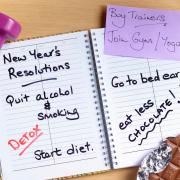 New Year's
Resolutions
Quit alcohol
& smoking
DETOX
Start diet.
Buy Trainers
Join Gym/Yoga
Go to bed ear
eat less
CHOCOLATE!